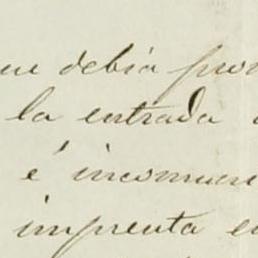 ue debia pro
la entrada
é incomuni
imprenta e